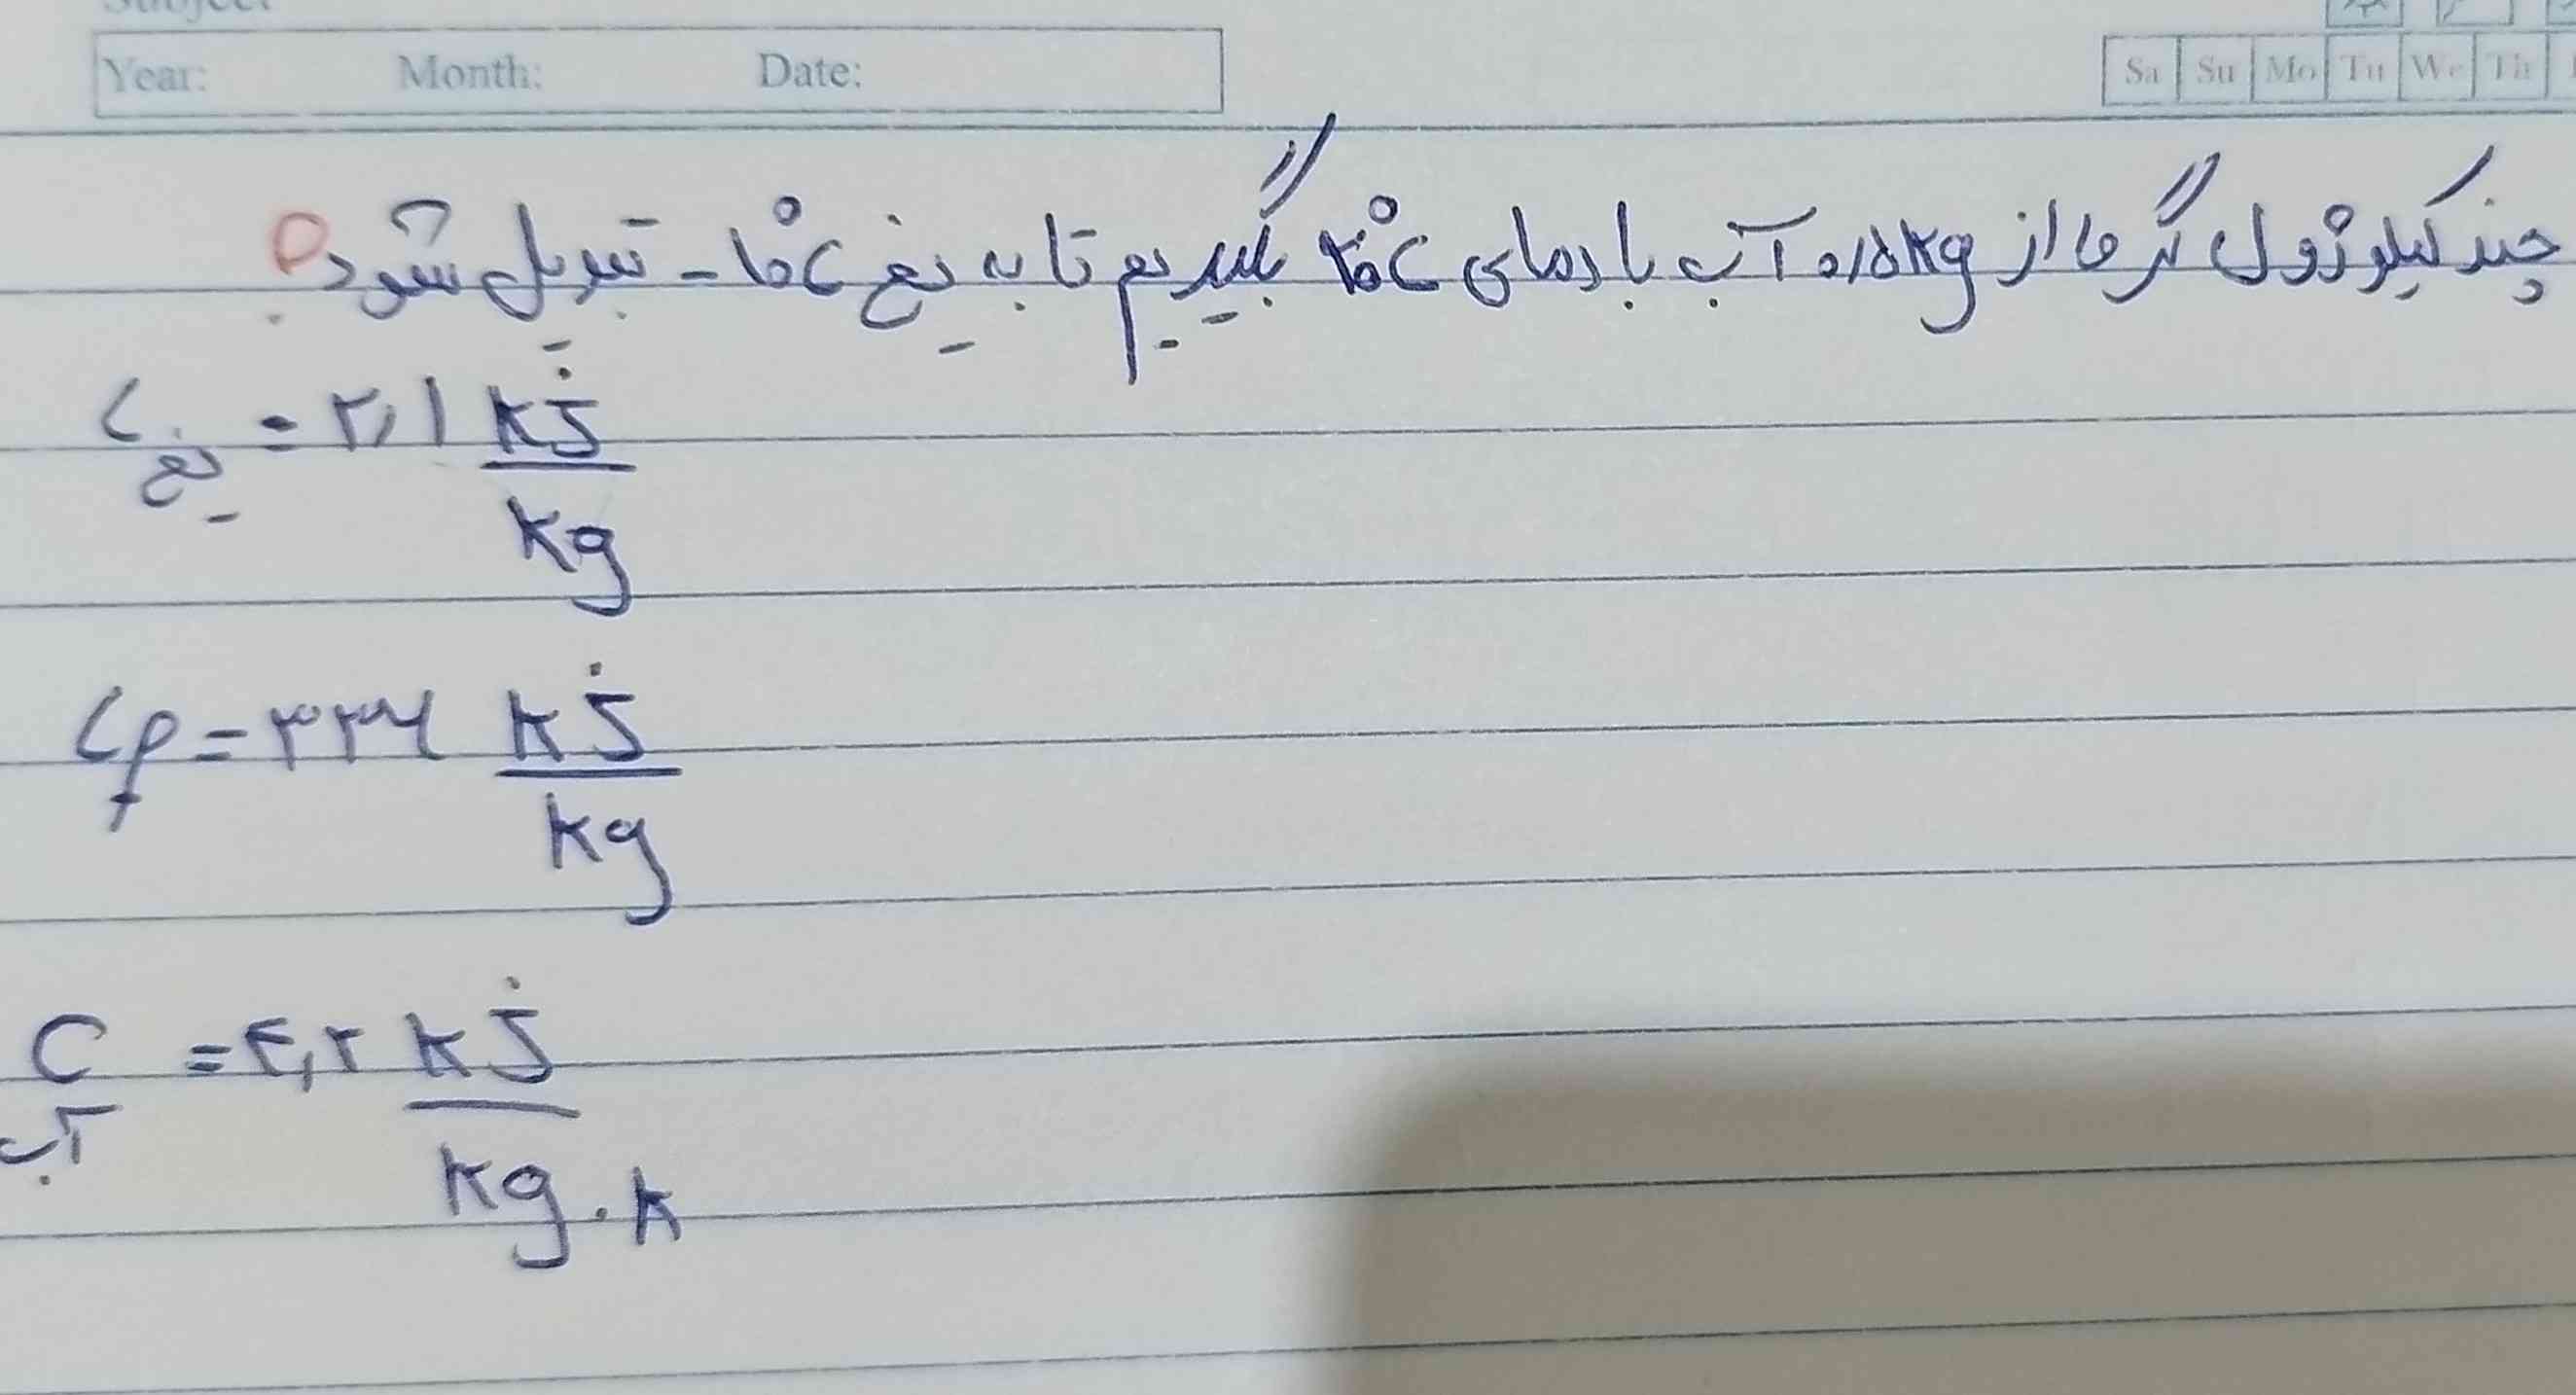 Subject
Year: Month: Date:
Sa Su Mo Tu We Th
چند کیلوژول گرما از ۰/۵kg آب با دمای ۲۰°c بگیریم تا به یخ ۱۰°c- تبدیل شود؟
C یخ = ۲,۱ kJ/kg
LF = ۳۳۶ kJ/kg
C آب = ۴,۲ kJ/kg.k